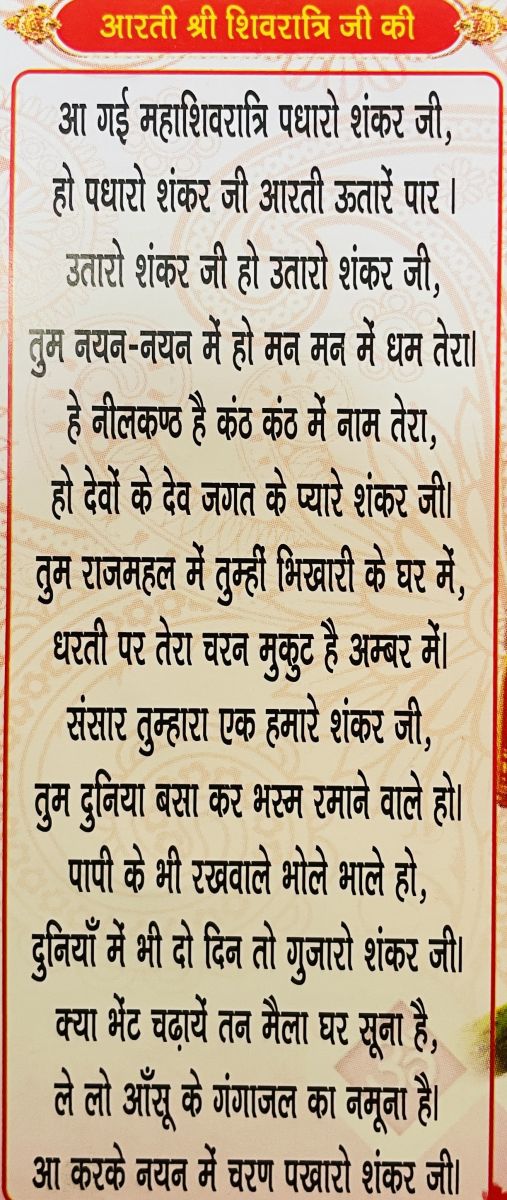 आरती श्री शिवरात्रि जी की
आ गई महाशिवरात्रि पधारो शंकर जी,
हो पधारो शंकर जी आरती ऊतारें पार ।
उतारो शंकर जी हो उतारो शंकर जी,
तुम नयन-नयन में हो मन मन में धम तेरा।
हे नीलकण्ठ है कंठ कंठ में नाम तेरा,
हो देवों के देव जगत के प्यारे शंकर जी।
तुम राजमहल में तुम्हीं भिखारी के घर में,
धरती पर तेरा चरन मुकुट है अम्बर में।
संसार तुम्हारा एक हमारे शंकर जी,
तुम दुनिया बसा कर भस्म रमाने वाले हो।
पापी के भी रखवाले भोले भाले हो,
दुनियाँ में भी दो दिन तो गुजारो शंकर जी।
क्या भेंट चढ़ायें तन मैला घर सूना है,
ले लो आँसू के गंगाजल का नमूना है।
आ करके नयन में चरण पखारो शंकर जी।